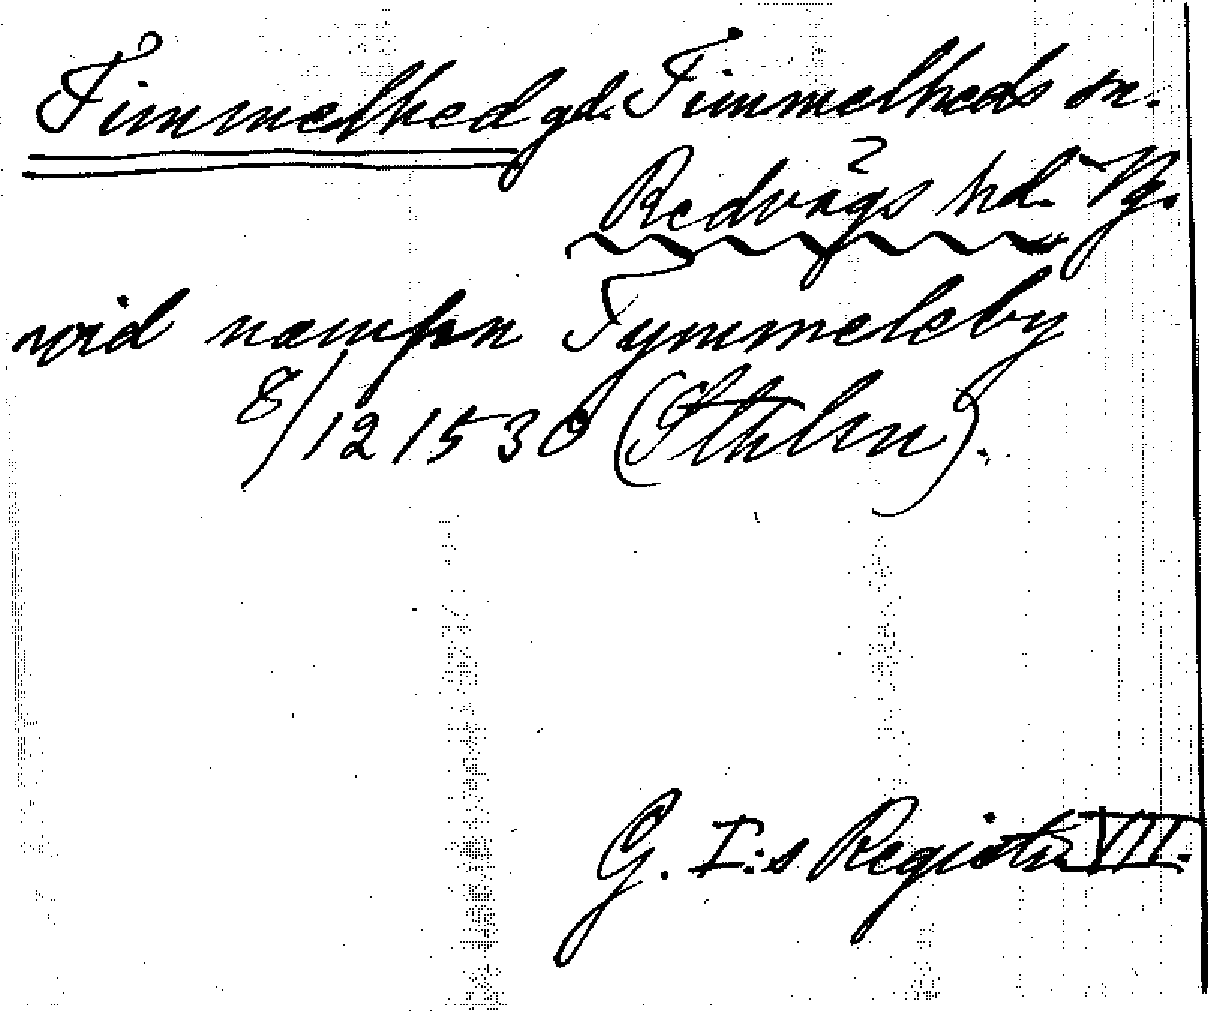 Timmelhed gd. Timmelheds sn.
Redvägs hd. Vg.
wid nampn Tymmeleby
8/12 1530 (Sthlm).
G. I:s Registr. VII.